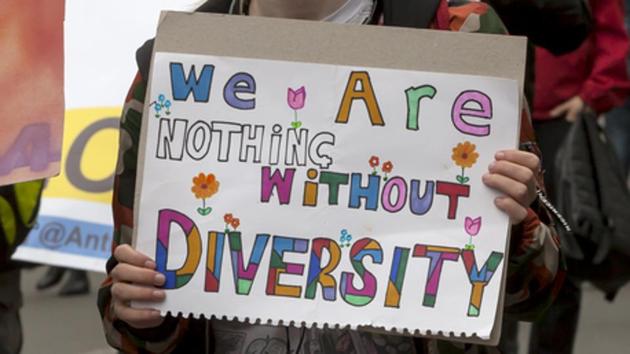 We Are
NOTHING
WITHOUT
DIVERSITY
@Anti